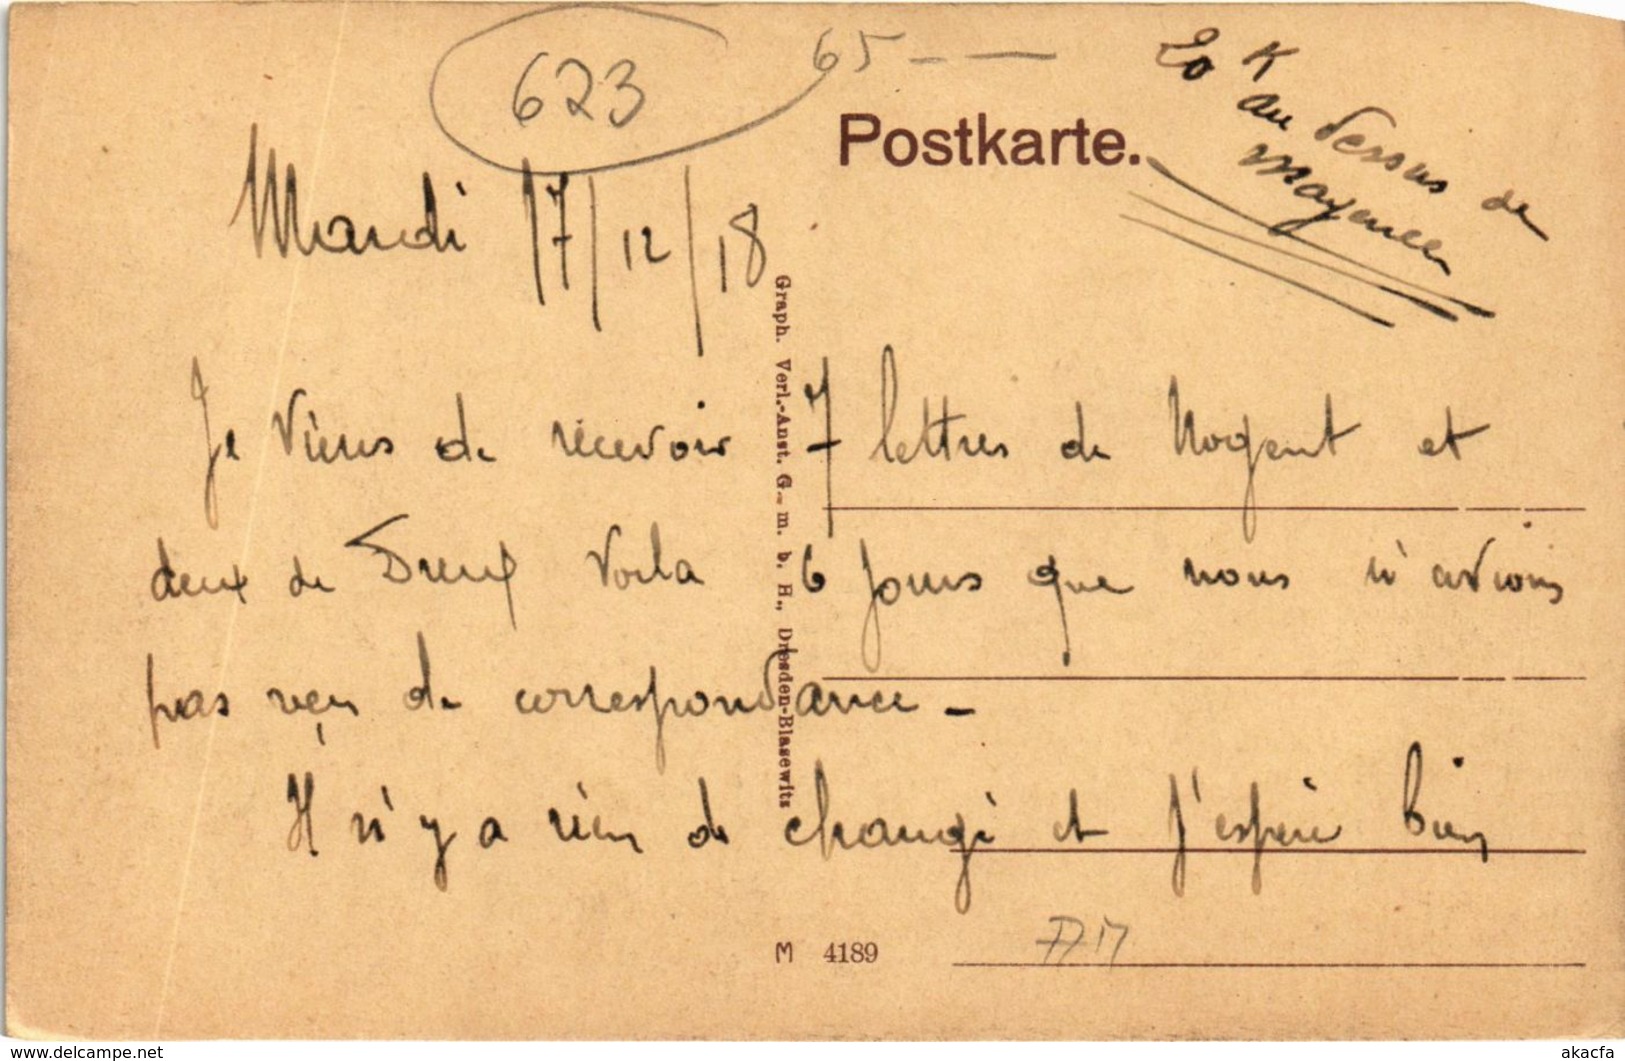 623
65 - —
20 K
au dessus de
Mayence
Postkarte.
Mardi 17/12/18
Je viens de recevoir 7 lettres de Nogent et
deux de Dreux Voila 6 jours que nous n'avions
pas reçu de correspondance -
Il n'y a rien de changé et j'espère bien
Graph. Verl.-Anst. G. m. b. H., Dresden-Blasewitz
M 4189
www.delcampe.net
akacfa